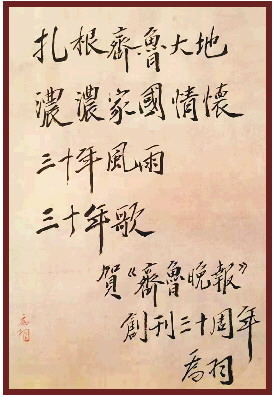 扎根齊魯大地
濃濃家國情懷
三十年風雨
三十年歌
賀《齊魯晚報》
創刊三十周年
喬羽